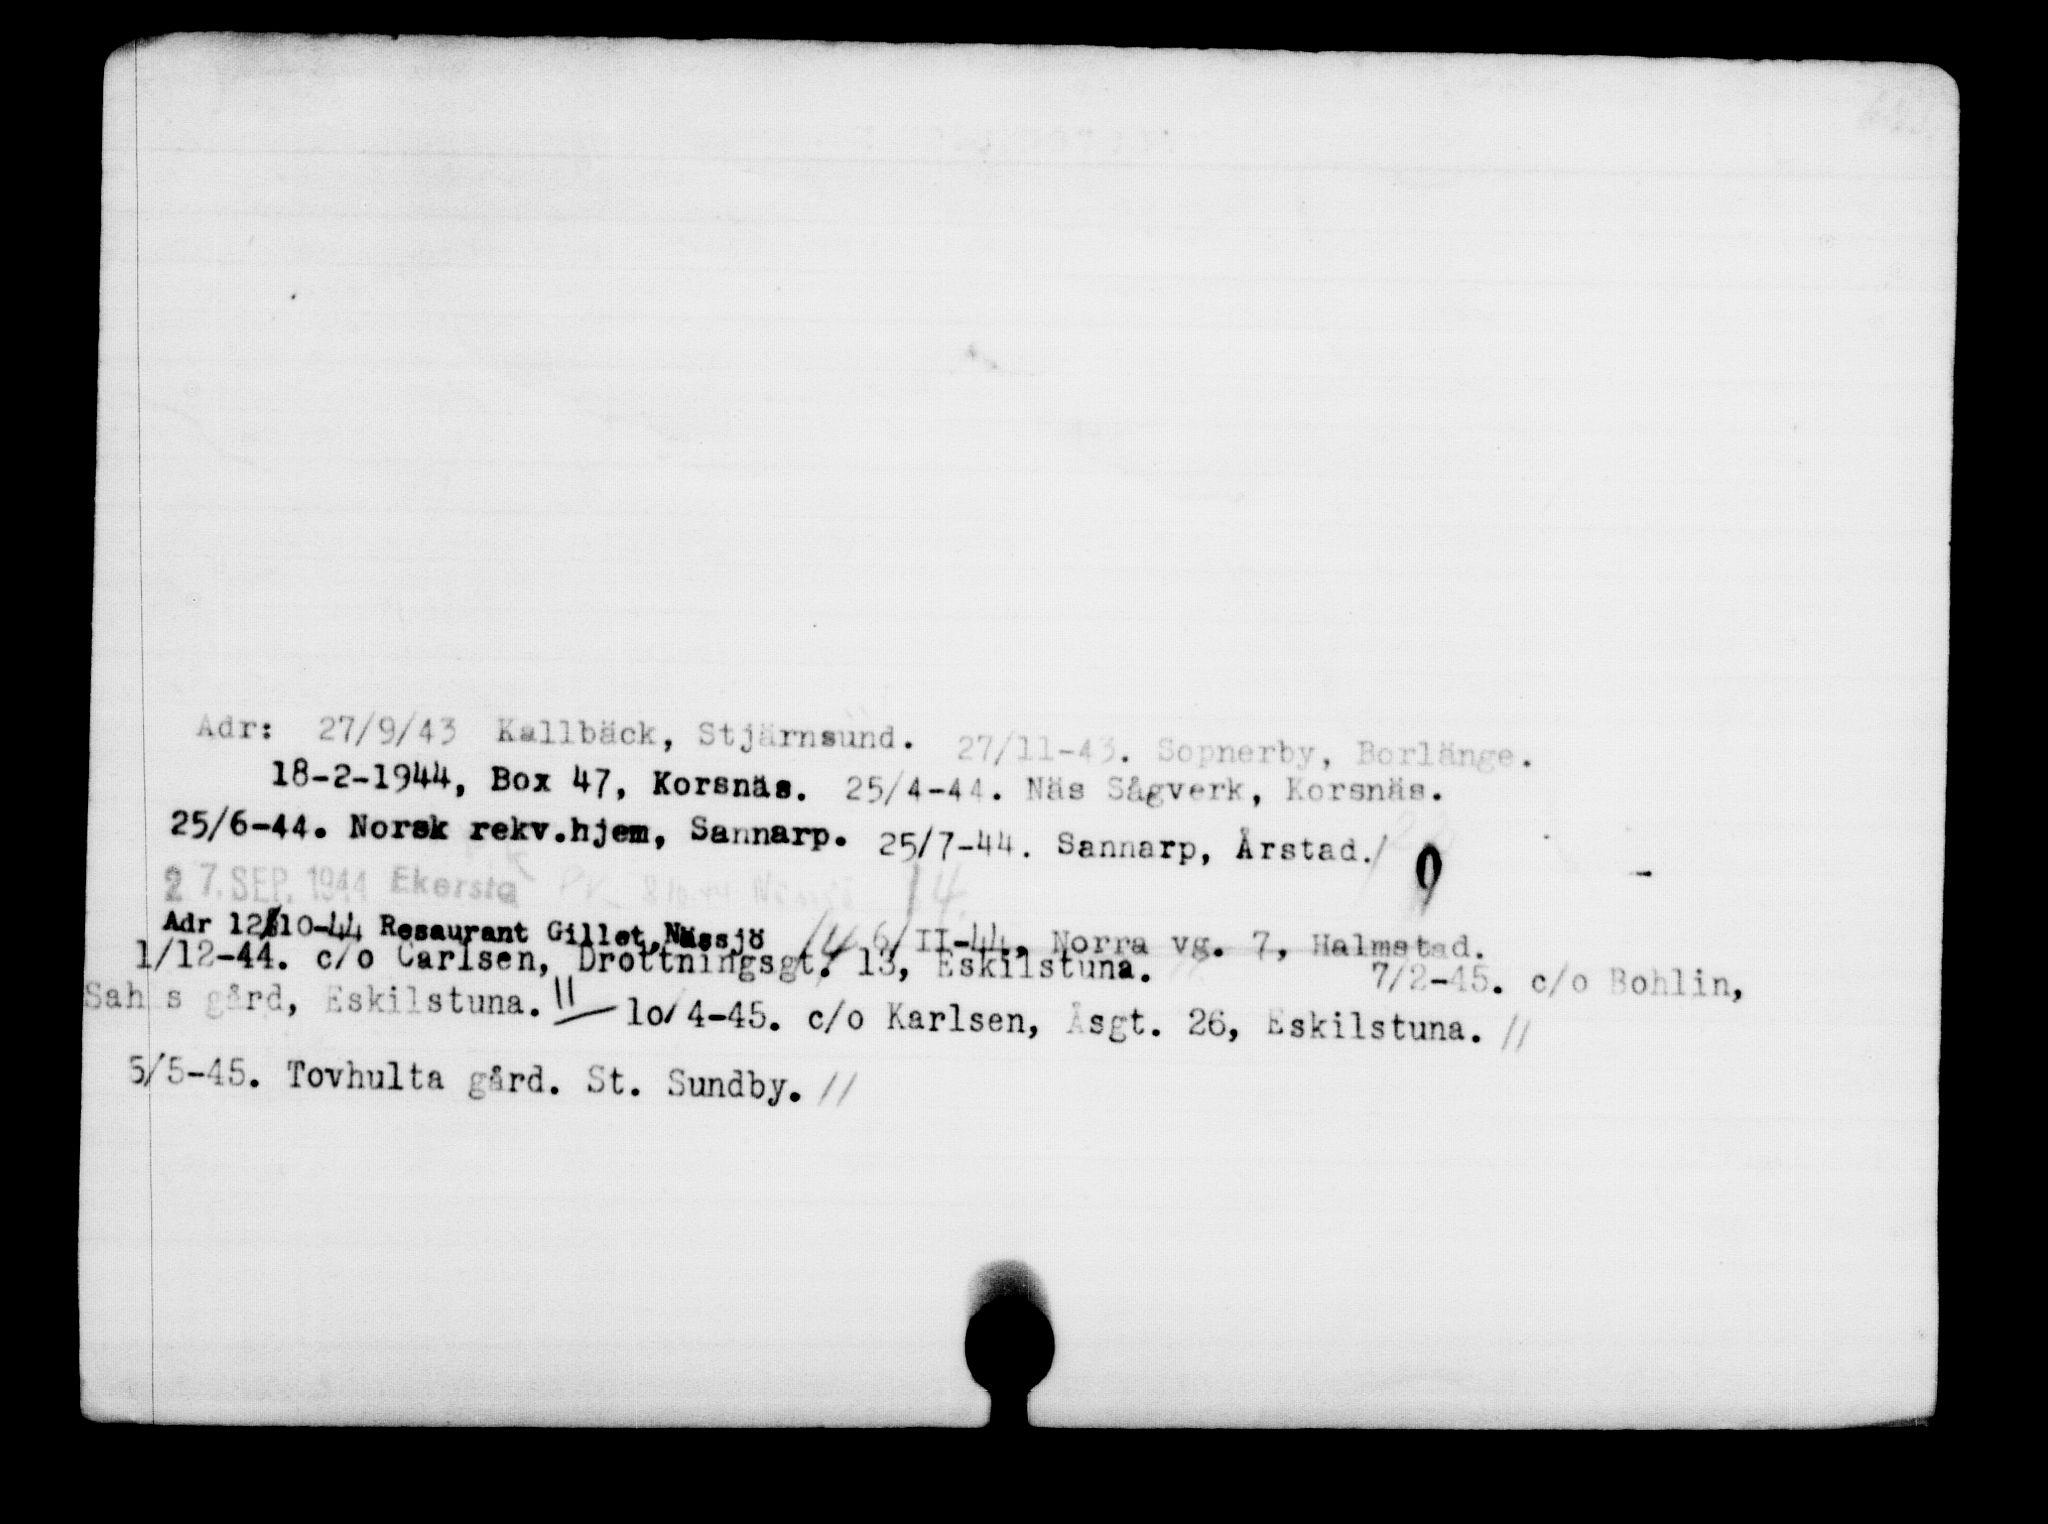 Adr: 27/9/43 Kallbäck, Stjärnsund. 27/11-43. Sopnerby, Borlänge.
18-2-1944, Box 47, Korsnäs. 25/4-44. Näs Sågverk, Korsnäs.
25/6-44. Norsk rekv.hjem, Sannarp. 25/7-44. Sannarp, Årstad./
27. SEP. 1944 Ekersta
Adr 12/10-44 Resaurant Gillet, Nässjö 6/II-44, Norra vg. 7, Halmstad.
1/12-44. c/o Carlsen, Drottningsgt. 13, Eskilstuna. 7/2-45. c/o Bohlin,
gård, Eskilstuna. // 10/4-45. c/o Karlsen, Åsgt. 26, Eskilstuna. //
5/5-45. Tovhulta gård. St. Sundby. //